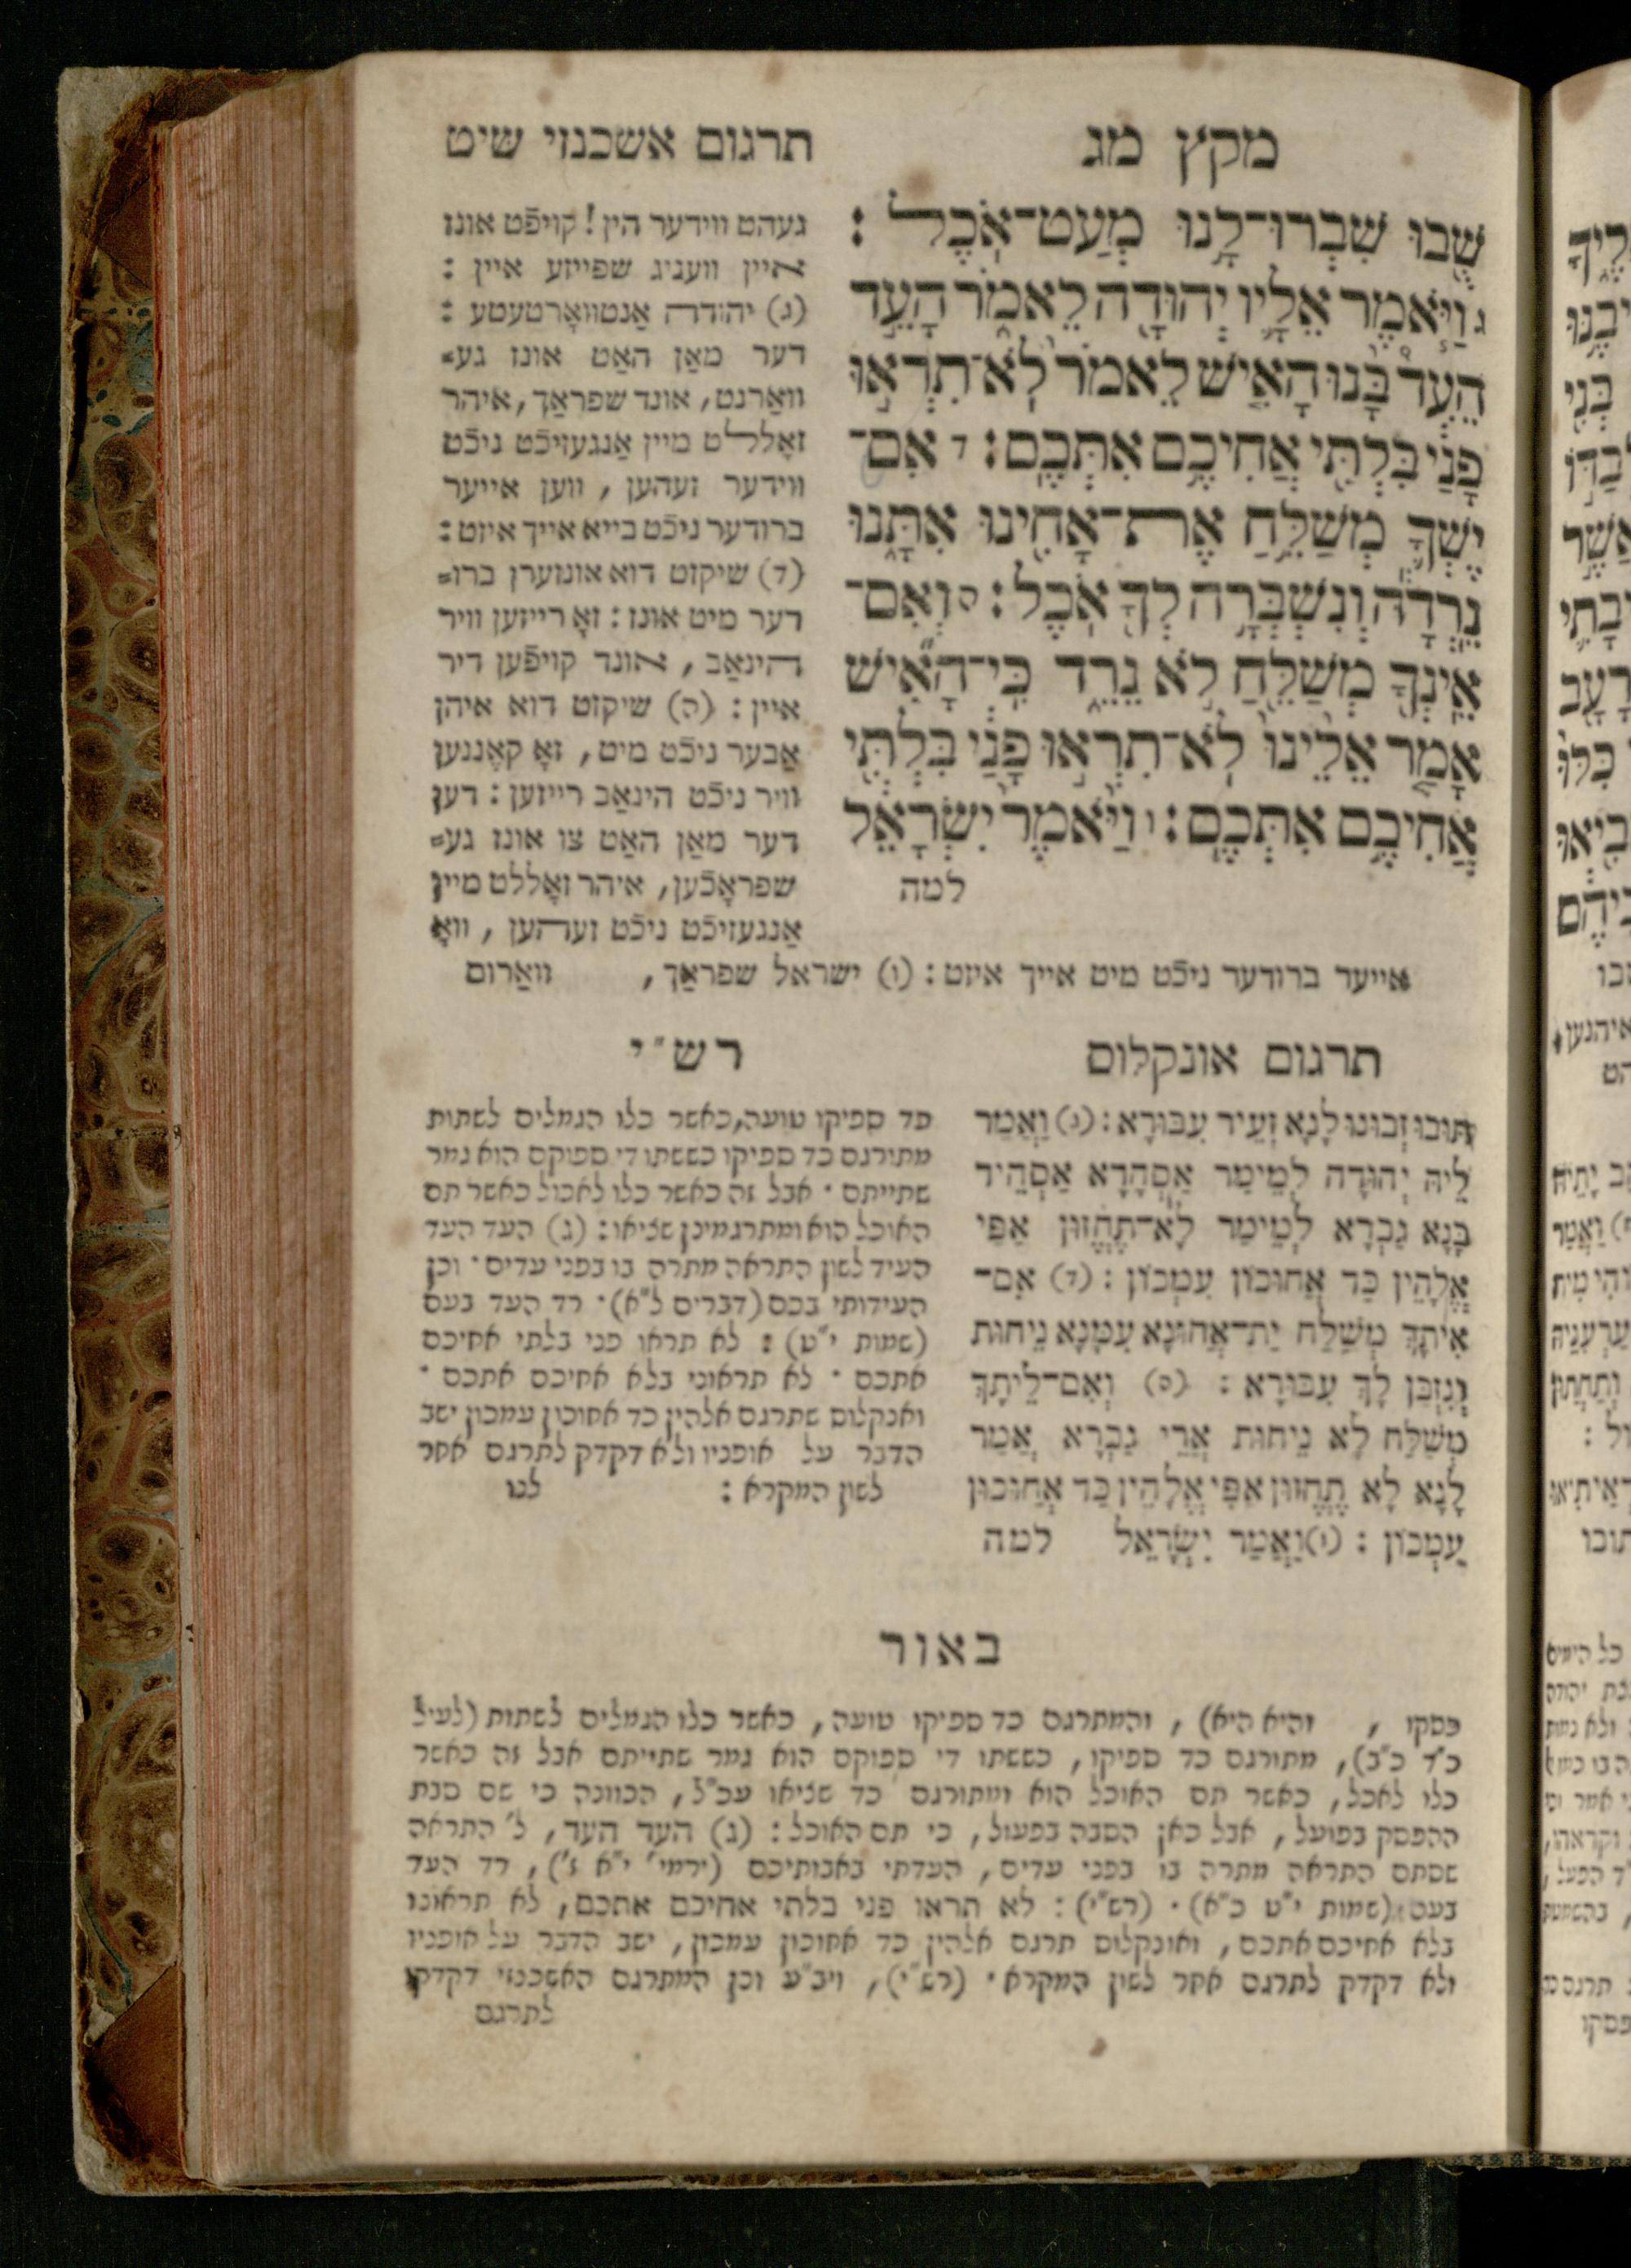 מקץ מג
תרגום אשכנזי שיט
שֻׁבוּ שִׁבְרוּ־לָנוּ מְעַט־אֹכֶל׃
ג וַיֹּאמֶר אֵלָיו יְהוּדָה לֵאמֹר הָעֵד
הֵעִד בָּנוּ הָאִישׁ לֵאמֹר לֹא־תִרְאוּ
פָנַי בִּלְתִּי אֲחִיכֶם אִתְּכֶם׃ ד אִם־
יֶשְׁךָ מְשַׁלֵּחַ אֶת־אָחִינוּ אִתָּנוּ
נֵרְדָה וְנִשְׁבְּרָה לְךָ אֹכֶל׃ ה וְאִם־
אֵינְךָ מְשַׁלֵּחַ לֹא נֵרֵד כִּי־הָאִישׁ
אָמַר אֵלֵינוּ לֹא־תִרְאוּ פָנַי בִּלְתִּי
אֲחִיכֶם אִתְּכֶם׃ ו וַיֹּאמֶר יִשְׂרָאֵל
למה
געהט ווידער הין! קויפֿט אונז
איין וועניג שפייזע איין׃
(ג) יהודה אַנטוואָרטעטע׃
דער מאַן האַט אונז גע=
וואַרנט, אונד שפראַך, איהר
זאָללט מיין אַנגעזיכֿט ניכֿט
ווידער זעהען, ווען אייער
ברודער ניכֿט בייא אייך איזט׃
(ד) שיקזט דוא אונזערן ברו=
דער מיט אונז׃ זאָ רייזען וויר
הינאַב, אונד קויפֿען דיר
איין׃ (ה) שיקזט דוא איהן
אַבער ניכֿט מיט, זאָ קאָננען
וויר ניכֿט הינאַב רייזען׃ דען
דער מאַן האַט צו אונז גע=
שפראָכֿען, איהר זאָללט מיין
אַנגעזיכֿט ניכֿט זעהען, וואָ
אייער ברודער ניכֿט מיט אייך איזט׃ (ו) ישראל שפראַך, וואַרום
תרגום אונקלוס
תּוּבוּ זְבוּנוּ לָנָא זְעֵיר עִבּוּרָא׃ (ג) וַאֲמַר
לֵיהּ יְהוּדָה לְמֵימַר אַסְהָדָא אַסְהֵיד
בָּנָא גַבְרָא לְמֵימַר לָא־תֶחֱזוּן אַפַּי
אֱלָהֵין כַּד אֲחוּכוֹן עִמְּכוֹן׃ (ד) אִם־
אִיתָךְ מְשַׁלַּח יַת־אֲחוּנָא עִמָּנָא נֵיחוּת
וְנִזְבֵּן לָךְ עִבּוּרָא׃ (ה) וְאִם־לֵיתָךְ
מְשַׁלַּח לָא נֵיחוּת אֲרֵי גַבְרָא אֲמַר
לָנָא לָא תֶחֱזוּן אַפַּי אֱלָהֵין כַּד אֲחוּכוֹן
עִמְּכוֹן׃ (ו) וַאֲמַר יִשְׂרָאֵל למה
רש״י
כד ספיקו טועה, כאשר כלו הגמלים לשתות
מתורגם כד ספיקו כששתו די ספוקם הוא גמר
שתייתם · אבל זה כאשר כלו לאכול כאשר תם
האוכל הוא ומתרגמינן שציאו׃ (ג) העד העד
העיד לשון התראה מתרה בו בפני עדים · וכן
העידותי בכם (דברים ל״א) · רד העד בעם
(שמות י״ט)׃ לא תראו פני בלתי אחיכם
אתכם · לא תראוני בלא אחיכם אתכם ·
ואנקלוס שתרגם אלהין כד אחוכון עמכון ישב
הדבר על אופניו ולא דקדק לתרגם אחר
לשון המקרא׃ לנו
באור
פסקו, והיא היא), והמתרגם כד ספיקו טועה, כאשר כלו הגמלים לשתות (לעיל
כ״ד כ״ב), מתורגם כד ספיקו, כששתו די ספוקם הוא גמר שתייתם אבל זה כאשר
כלו לאכל, כאשר תם האוכל הוא ומתורגם כד שציאו עכ״ל, הכוונה כי שם סבת
ההפסק בפועל, אבל כאן הסבה בפעול, כי תם האוכל׃ (ג) העד העד, ל׳ התראה
שסתם התראה מתרה בו בפני עדים, העדתי באבותיכם (ירמי׳ י״א ז׳), רד העד
בעם (שמות י״ט כ״א) · (רש״י)׃ לא תראו פני בלתי אחיכם אתכם, לא תראונו
בלא אחיכם אתכם, ואונקלוס תרגם אלהין כד אחוכון עמכון, ישב הדבר על אופניו
ולא דקדק לתרגם אחר לשון המקרא · (רש״י), ויב״ע וכן המתרגם האשכנזי דקדקו
לתרגם